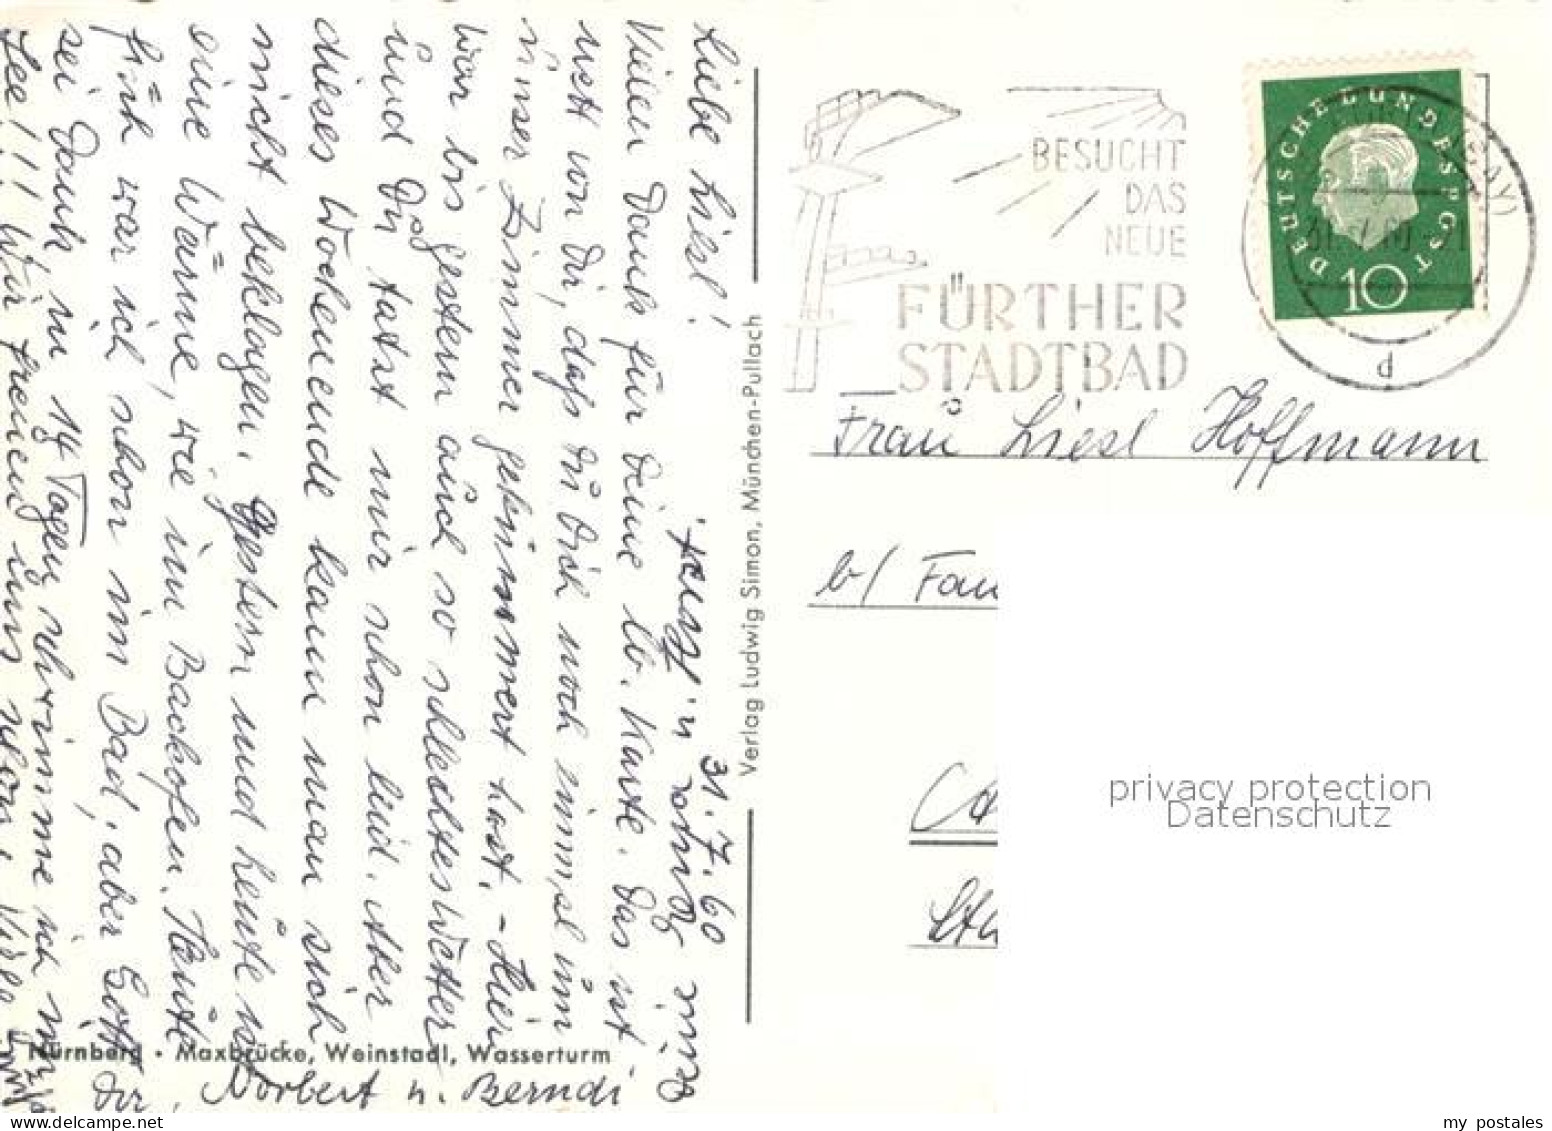 31.7.60
Liebe Liesl!
Vielen Dank für Deine lb. Karte. Das ist
nett von Dir, daß Du Dich noch einmal um
unser Zimmer gekümmert hast. – Hier
war bis gestern auch so schlechtes Wetter
und Du tatst mir schon leid. Aber
dieses Wochenende kann man sich
nicht beklagen. Gestern und heute ist
eine Wärme, wie im Backofen. Heute
früh war ich schon im Bad, aber Gott
sei Dank in 14 Tagen schwimme ich im
See!!! Wir freuen uns schon. Viele
Norbert u. Berndi
u. Horst.
Nürnberg · Maxbrücke, Weinstadl, Wasserturm
Verlag Ludwig Simon, München-Pullach
BESUCHT
DAS
NEUE
FÜRTHER
STADTBAD
DEUTSCHE BUNDESPOST
10
d
Frau Liesl Hoffmann
b/ Fam
privacy protection
Datenschutz
my postales